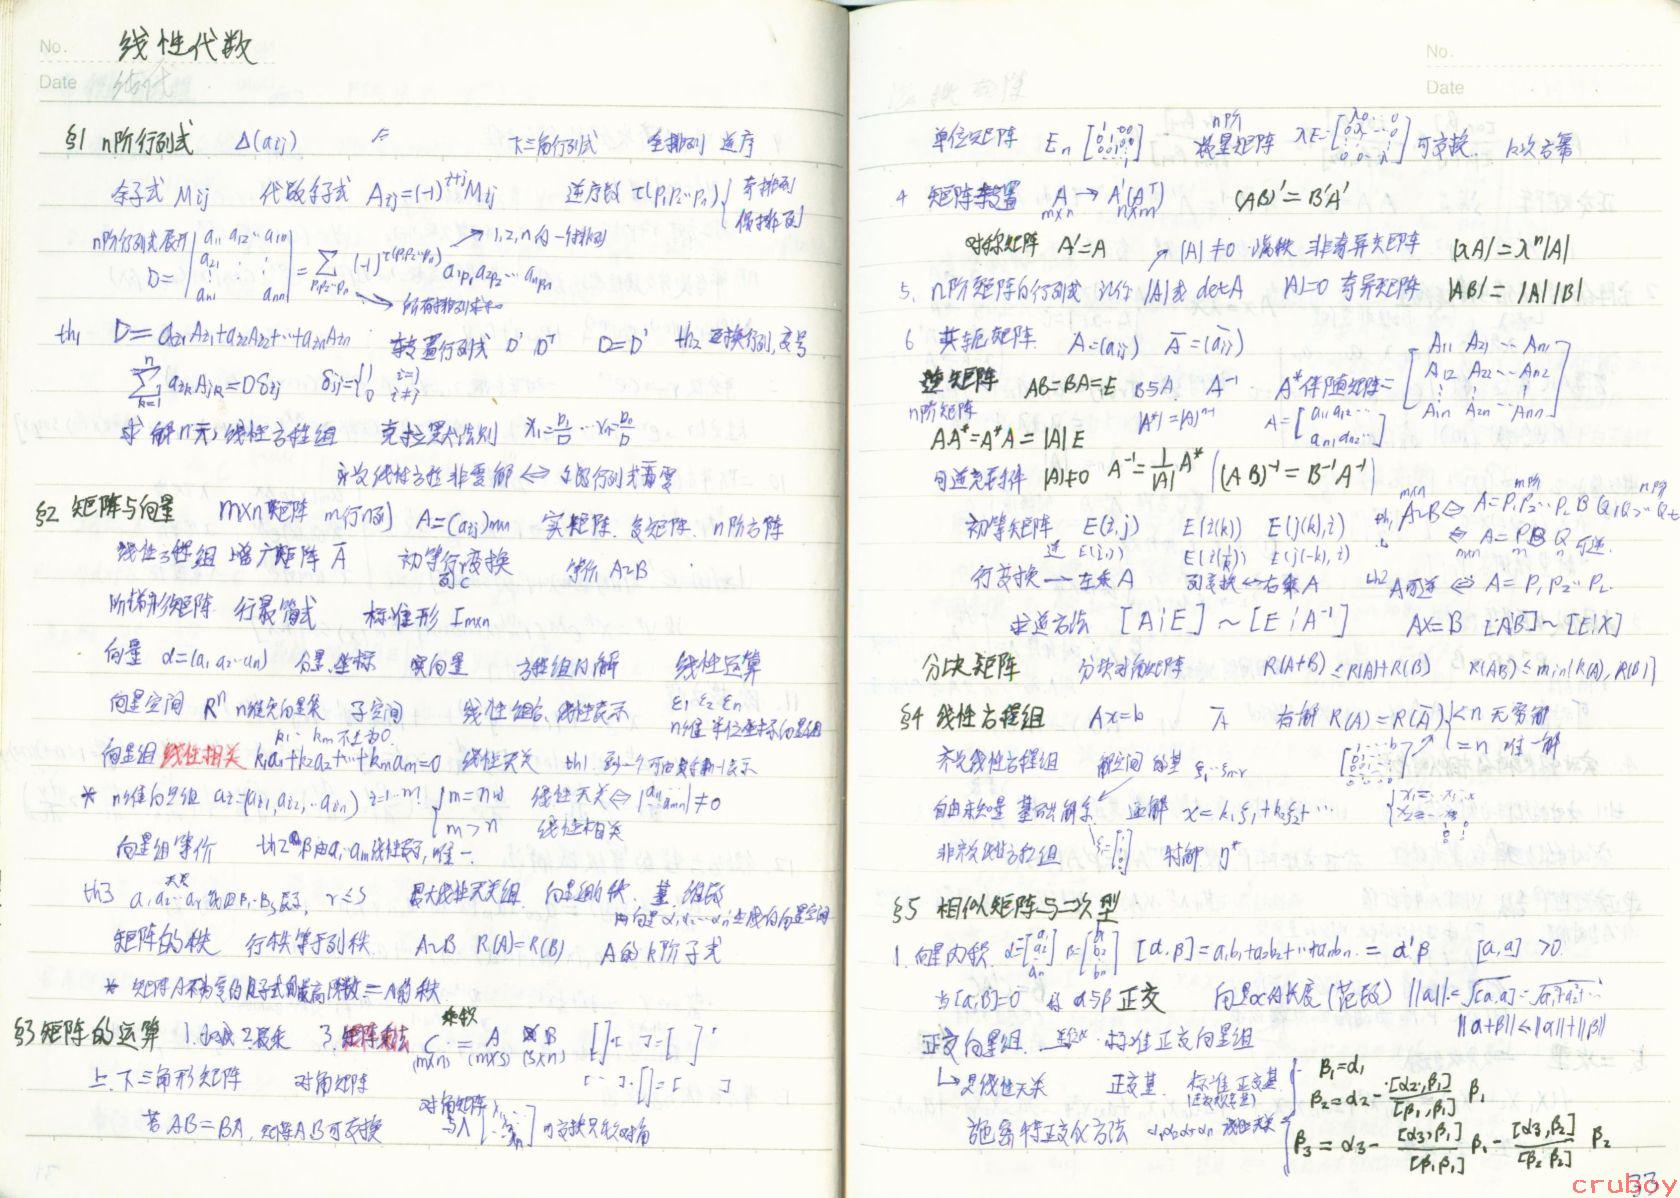 No.
线性代数
Date
§1 n阶行列式 Δ(aij) 下三角行列式 全排列 逆序
余子式 Mij 代数余子式 Aij=(-1)^{i+j}Mij 逆序数 τ(p1p2…pn) { 奇排列
偶排列
n阶行列式展开 → 1,2,n的一个排列
D= |a11 a12…a1n; a21 ⋮ ⋮; an1 ann| = Σ_{p1p2…pn} (-1)^{τ(p1p2…pn)} a1p1 a2p2…anpn
→ 所有排列求和
th1 D=ai1Ai1+ai2Ai2+…+ainAin 转置行列式 D' D^T D=D' th2 互换行列,变号
Σ_{k=1}^{n} aikAjk=Dδij δij={1 i=j
0 i≠j
求解n元线性方程组 克拉默法则 x1=D1/D … xn=Dn/D
齐次线性方程非零解 ⟺ 系数行列式为零
§2 矩阵与向量 m×n矩阵 m行n列 A=(aij)m×n 实矩阵、复矩阵、n阶方阵
线性方程组 增广矩阵 Ā 初等行变换 等价 A~B
列c
阶梯形矩阵 行最简式 标准形 Im×n
向量 α=(a1 a2…an) 分量.坐标 实向量 方程组的解 线性运算
向量空间 R^n n维实向量集 子空间 线性组合、线性表示 ε1 ε2 εn
k1…km不全为0 n维单位坐标向量组
向量组线性相关 k1a1+k2a2+…+kmam=0 线性无关
* n维向量组 ai=(ai1,ai2,…ain) i=1…m { m=n时 线性无关⟺|a11 amn|≠0
m>n 线性相关
向量组等价 th2 β由a1…am线性表示,唯一
无关
th3 a1,a2…ar能由β1…βs表示, r≤s 最大线性无关组 向量组的秩 基 维数
由向量α1,α2…αn生成的向量空间
矩阵的秩 行秩等于列秩 A~B R(A)=R(B) A的k阶子式
* 矩阵A不为零的子式的最高阶数=A的秩
乘积
§3 矩阵的运算 1.加减 2.数乘 3.矩阵乘法 C = A B
(m×n) (m×s) (s×n)
上.下三角形矩阵 对角矩阵
若AB=BA, 矩阵AB可交换 对角矩阵与Λ 可交换只能对角
No.
Date
单位矩阵 En n阶数量矩阵 λE= 可交换. k次方幂
4 矩阵转置 A → A'(A^T) (AB)'=B'A'
m×n n×m
对称矩阵 A'=A |A|≠0 满秩 非奇异矩阵 |λA|=λ^n|A|
5. n阶矩阵的行列式 记作|A|或detA |A|=0 奇异矩阵 |AB|=|A||B|
6 共轭矩阵 A=(aij) Ā=(āij)
逆矩阵 AB=BA=E B与A A^{-1} A*伴随矩阵= [A11 A21…An1; A12 A22…An2; ⋮; A1n A2n…Ann]
n阶矩阵
AA*=A*A=|A|E |A*|=|A|^{n-1} A=[a11 a12…; an1 an2…]
可逆充要条件 |A|≠0 A^{-1}=1/|A| A* (AB)^{-1}=B^{-1}A^{-1}
初等矩阵 E(i,j) E(i(k)) E(j(k),i) th1 A~B ⟺ A=P1P2…Pl B Q1Q2…Qt
逆 E(i,j) E(i(1/k)) E(j(-k),i) ⟺ A=PBQ 可逆.
行变换→左乘A 列变换↔右乘A th2 A可逆 ⟺ A=P1P2…Pl
求逆方法 [A¦E]~[E¦A^{-1}] AX=B [A¦B]~[E¦X]
分块矩阵 分块对角矩阵 R(A+B)≤R(A)+R(B) R(AB)≤min{R(A),R(B)}
§4 线性方程组 Ax=b Ā 有解 R(A)=R(Ā) { <n 无穷解
=n 唯一解
齐次线性方程组 解空间的基 ξ1…ξn-r
自由未知量 基础解系 通解 x=k1ξ1+k2ξ2+…
非齐次线性方程组 特解 η*
§5 相似矩阵与二次型
1.向量内积 α=[a1 a2 ⋮ an] β=[b1 b2 ⋮ bn] [α,β]=a1b1+a2b2+…+anbn = α'β [a,a]>0
当[α,β]=0 称α与β正交 向量α的长度(范数) ||α||=√[α,α]=√a1²+a2²+…
||α+β||≤||α||+||β||
正交向量组 标准正交向量组
↳是线性无关 正交基 标准正交基 { β1=α1
β2=α2-[α2,β1]/[β1,β1] β1
施密特正交化方法 α1α2α3…αn 线性无关 β3=α3-[α3,β1]/[β1β1] β1-[α3,β2]/[β2β2] β2
33
cruboy